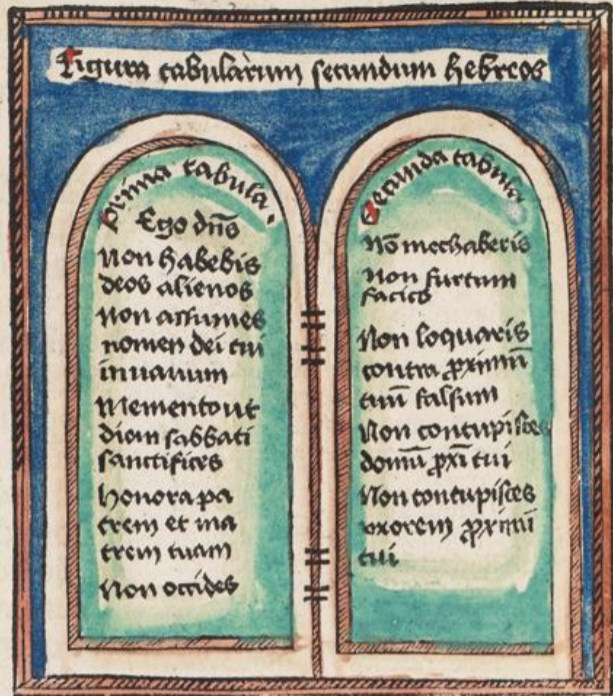 Figura tabularum secundum hebreos
Prima tabula.
Ego dns̄
Non habebis
deos alienos
Non assumes
nomen dei tui
in vanum
Memento ut
diem sabbati
sanctifices
Honora pa
trem et ma
trem tuam
Non occides
Secunda tabula
Nō mechaberis
Non furtum
facies
Non loquaris
contra ꝓximū
tuū falsum
Non concupisces
domū ꝓxi tui
Non concupisces
uxorem ꝓximi
tui